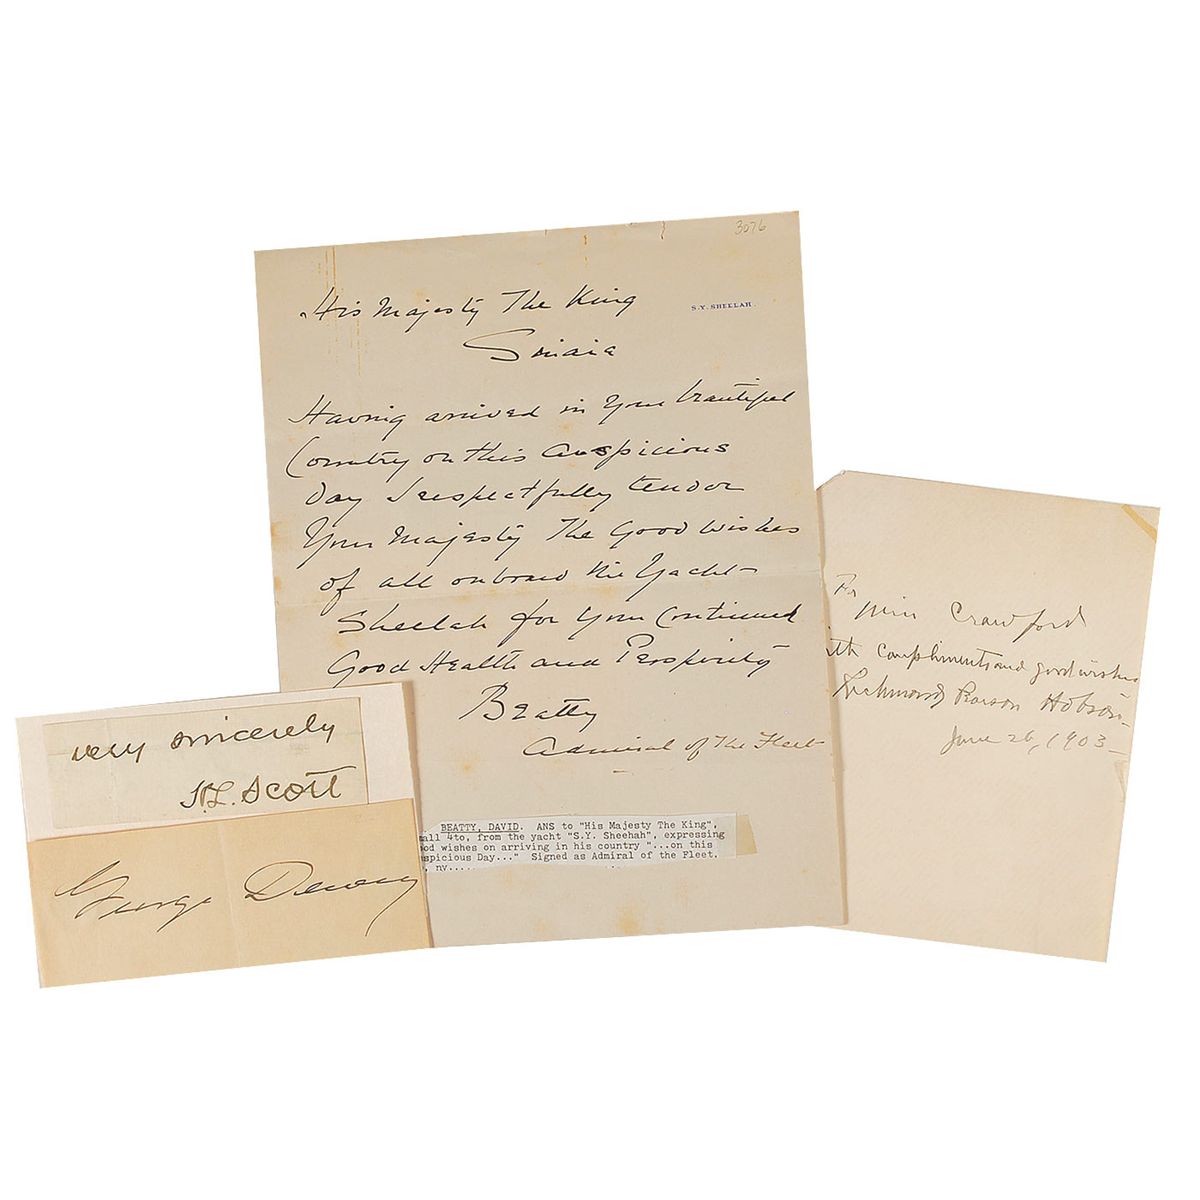 3076
S.Y. SHEELAH.
His Majesty The King
Sinaia
Having arrived in Your beautiful
Country on this auspicious
Day I respectfully tender
Your Majesty The Good Wishes
of all onboard the Yacht
Sheelah for Your Continued
Good Health and Prosperity
Beatty
Admiral of The Fleet
BEATTY, DAVID. ANS to "His Majesty The King",
mall 4to, from the yacht "S.Y. Sheehah", expressing
ood wishes on arriving in his country "...on this
uspicious Day..." Signed as Admiral of the Fleet.
, nv....
very sincerely
H.L. Scott
George Dewey
For
Miss Crawford
ith compliments and good wishes
Richmond Pearson Hobson
June 26, 1903